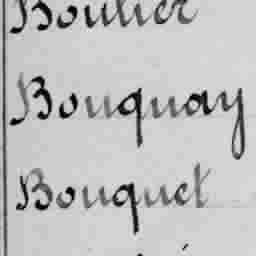 Boulier
Bouquay
Bouquet